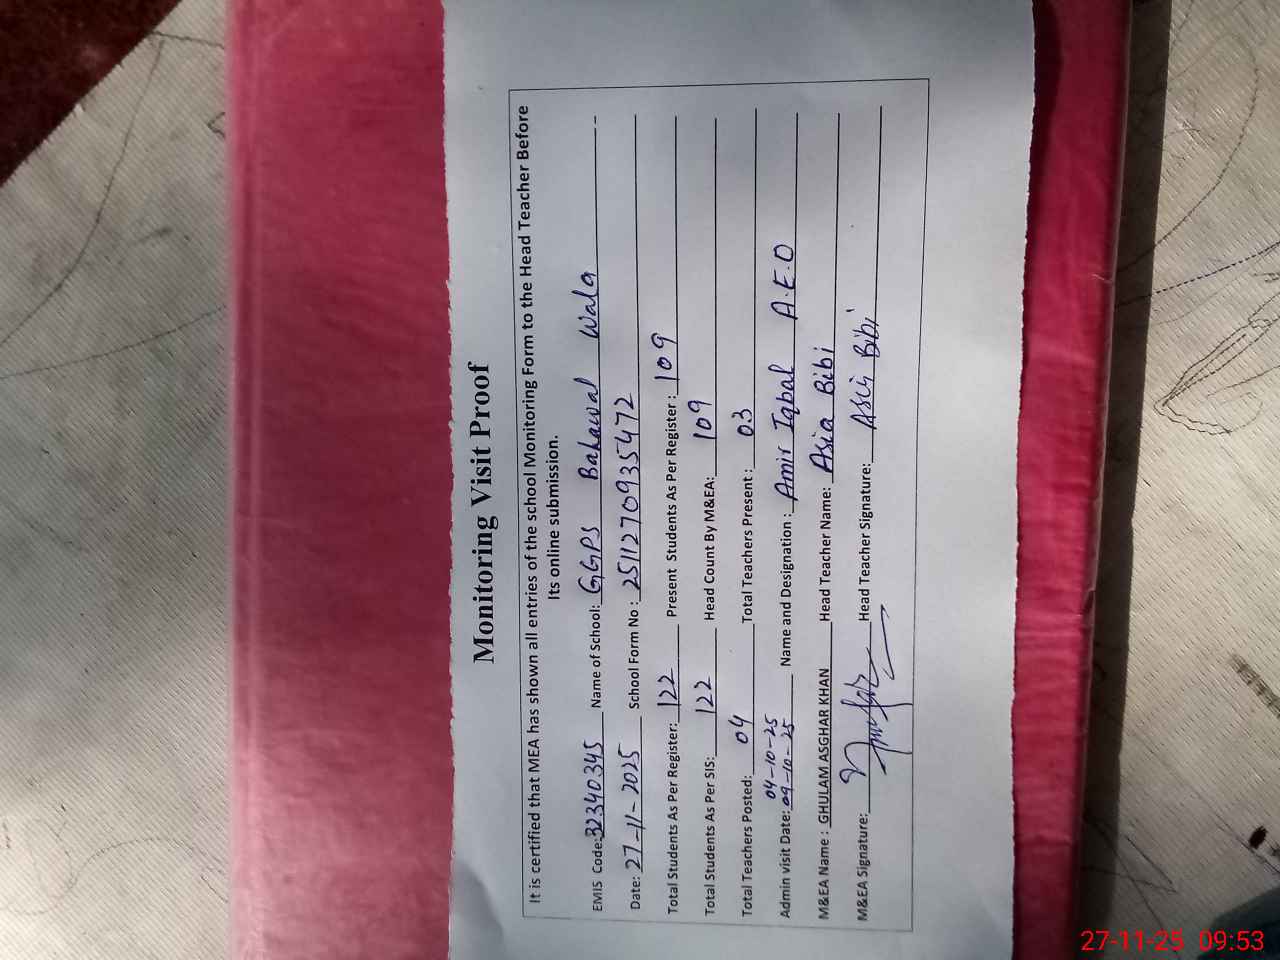 Monitoring Visit Proof
It is certified that MEA has shown all entries of the school Monitoring Form to the Head Teacher Before
Its online submission.
EMIS Code: 32340345 Name of School: GGPS Bahawal Wala
Date: 27-11-2025 School Form No : 251127093547​2
Total Students As Per Register: 122 Present Students As Per Register : 109
Total Students As Per SIS: 122 Head Count By M&EA: 109
Total Teachers Posted: 04 Total Teachers Present : 03
04-10-25
Admin visit Date: 09-10-25 Name and Designation : Amir Iqbal A.E.O
M&EA Name : GHULAM ASGHAR KHAN Head Teacher Name: Asia Bibi
M&EA Signature: Head Teacher Signature: Asia Bibi
27-11-25 09:53